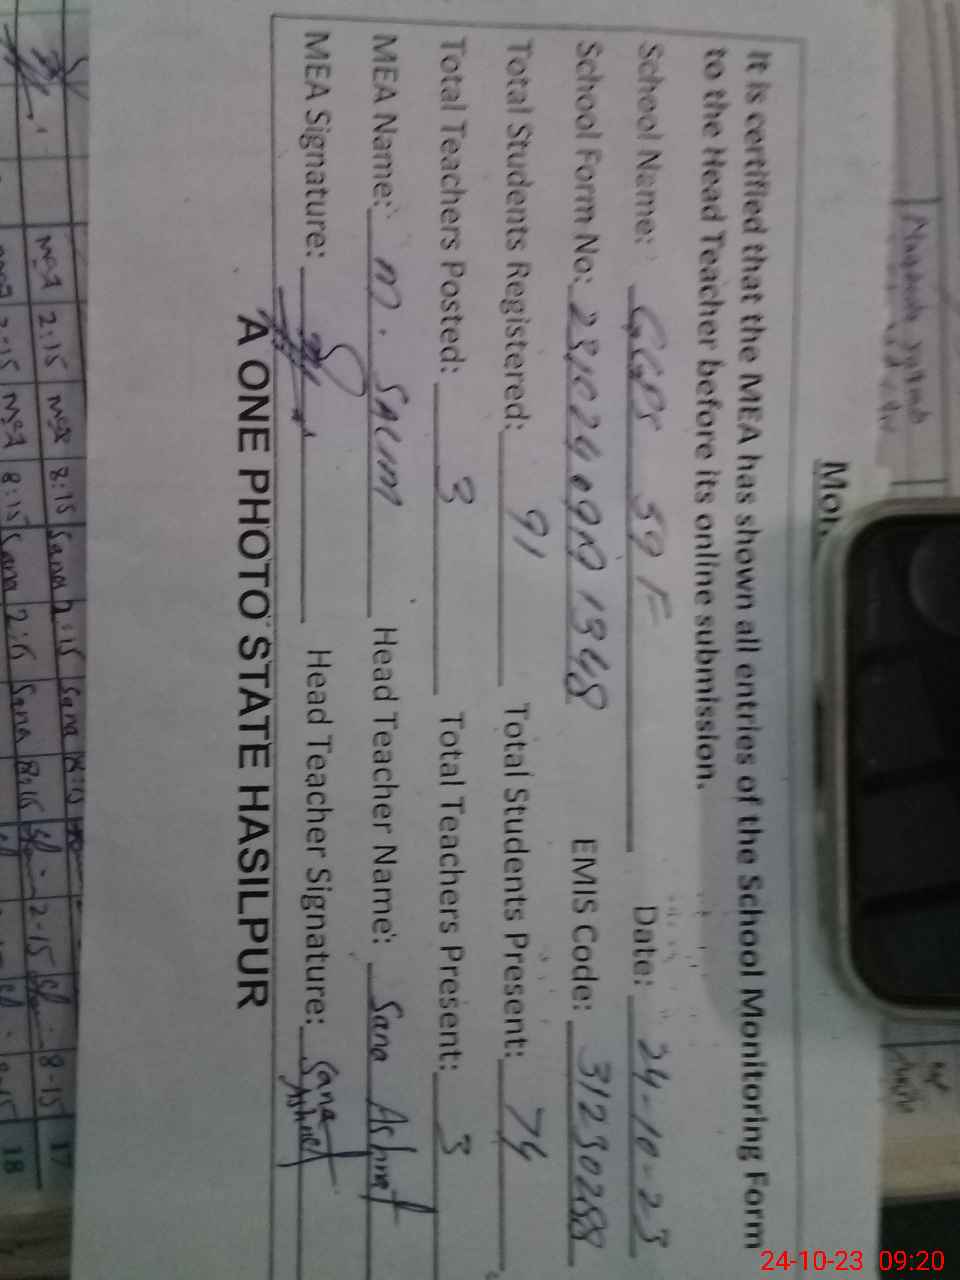 It is certified that the MEA has shown all entries of the School Monitoring Form
to the Head Teacher before its online submission.
School Name: GGPS 59 F Date: 24-10-23
School Form No: EMIS Code: 31230288
Total Students Registered: 91 Total Students Present: 74
Total Teachers Posted: 3 Total Teachers Present: 3
MEA Name: M. Salim Head Teacher Name: Sana Ashraf
MEA Signature: Head Teacher Signature: Sana Ashraf
A ONE PHOTO STATE HASILPUR
2:15 8:15 Sana 2:15 Sana 2-15 8-15 17
2:15 8:15 Sana 2:15 Sana 8:15 18
24-10-23 09:20